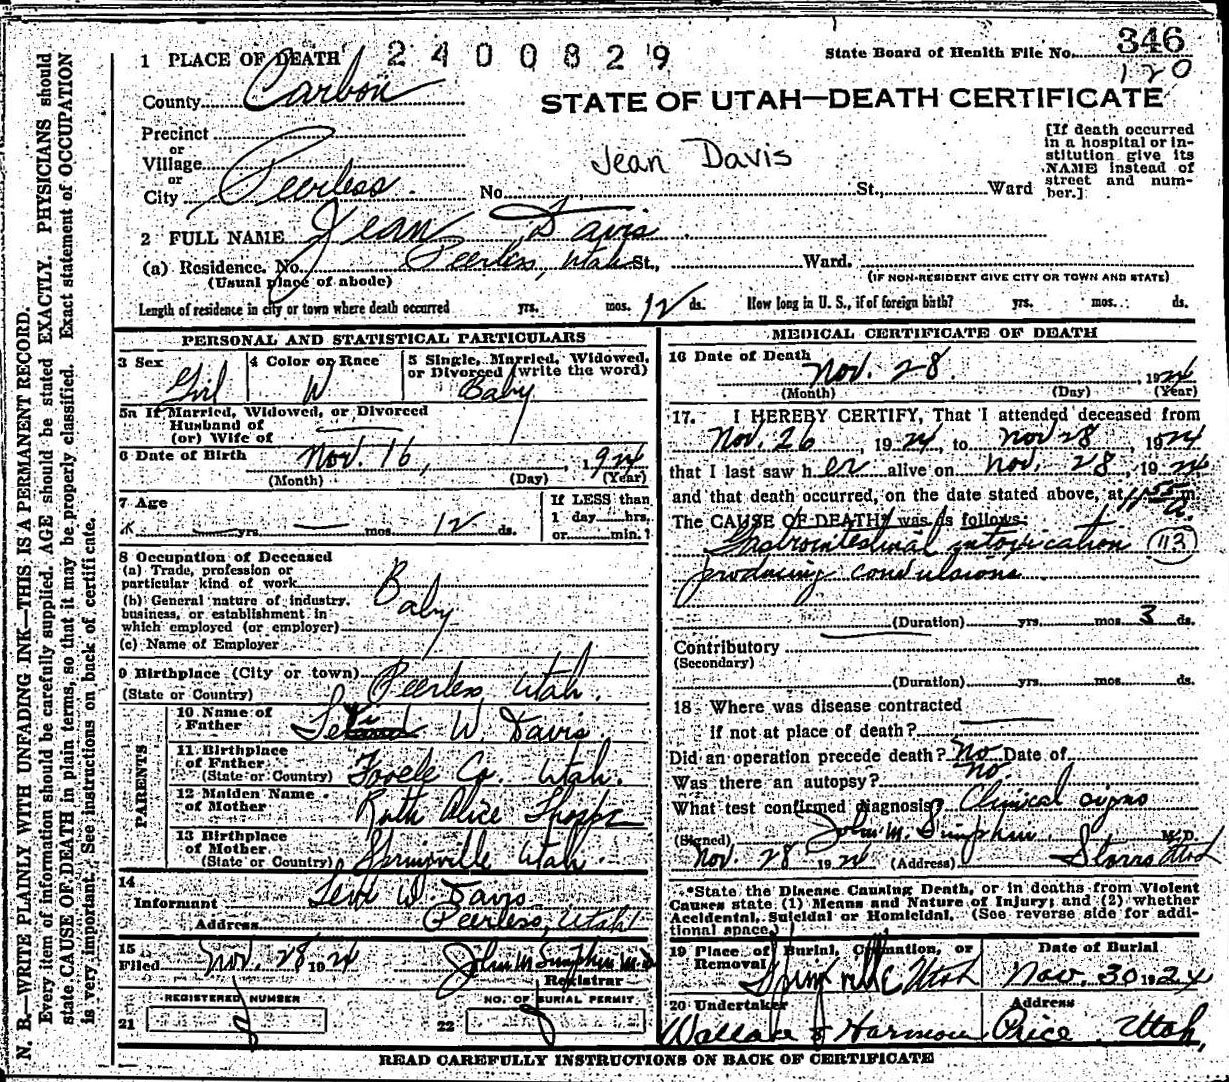 346
State Board of Health File No.
120
2400829
1 PLACE OF DEATH
County Carbon
STATE OF UTAH—DEATH CERTIFICATE
Precinct
or
Village
or
City Peerless. No. St., Ward
Jean Davis
[If death occurred
in a hospital or in-
stitution give its
NAME instead of
street and num-
ber.]
2 FULL NAME Jean Davis
(a) Residence. No. Peerless, Utah St., Ward.
(Usual place of abode)
(IF NON-RESIDENT GIVE CITY OR TOWN AND STATE)
Length of residence in city or town where death occurred yrs. mos. 12 ds. How long in U. S., if of foreign birth? yrs. mos. ds.
PERSONAL AND STATISTICAL PARTICULARS
3 Sex Girl
4 Color or Race W
5 Single, Married, Widowed,
or Divorced (write the word)
Baby
5a If Married, Widowed, or Divorced
Husband of
(or) Wife of
6 Date of Birth Nov. 16, 1924
(Month) (Day) (Year)
7 Age
yrs. mos. 12 ds.
If LESS than
1 day hrs.
or min.?
8 Occupation of Deceased
(a) Trade, profession or
particular kind of work
Baby
(b) General nature of industry,
business, or establishment in
which employed (or employer)
(c) Name of Employer
9 Birthplace (City or town) Peerless, Utah.
(State or Country)
PARENTS
10 Name of
Father W. Davis
11 Birthplace
of Father Tooele Co. Utah.
(State or Country)
12 Maiden Name
of Mother Ruth Alice
13 Birthplace
of Mother Springville Utah.
(State or Country)
14
Informant Levi W. Davis
Address Peerless, Utah
15
Filed Nov. 28 1924 John M Simphin M.D
Registrar
REGISTERED NUMBER
21
NO. OF BURIAL PERMIT
22
MEDICAL CERTIFICATE OF DEATH
16 Date of Death Nov. 28. 1924
(Month) (Day) (Year)
17. I HEREBY CERTIFY, That I attended deceased from
Nov. 26, 1924, to Nov 28, 1924
that I last saw her alive on Nov. 28, 1924
and that death occurred, on the date stated above, at 11 55 a m.
The CAUSE OF DEATH* was as follows:
Gastrointestinal intoxication 113
producing convulsions
(Duration) yrs. mos. 3 ds.
Contributory
(Secondary)
(Duration) yrs. mos. ds.
18 Where was disease contracted
if not at place of death?
Did an operation precede death? No Date of
Was there an autopsy? no.
What test confirmed diagnosis? Clinical signs
(Signed) John M. Simphin. M.D.
Nov. 28 1924 (Address) Storrs Utah
*State the Disease Causing Death, or in deaths from Violent
Causes state (1) Means and Nature of Injury; and (2) whether
Accidental, Suicidal or Homicidal. (See reverse side for addi-
tional space.)
19 Place of Burial, Cremation, or
Removal
Springville Utah
Date of Burial
Nov. 30 1924
20 Undertaker
Wallace & Harmon
Address
Price Utah,
READ CAREFULLY INSTRUCTIONS ON BACK OF CERTIFICATE
N. B.—WRITE PLAINLY WITH UNFADING INK—THIS IS A PERMANENT RECORD.
Every item of information should be carefully supplied. AGE should be stated EXACTLY. PHYSICIANS should
state CAUSE OF DEATH in plain terms, so that it may be properly classified. Exact statement of OCCUPATION
is very important. See instructions on back of certificate.